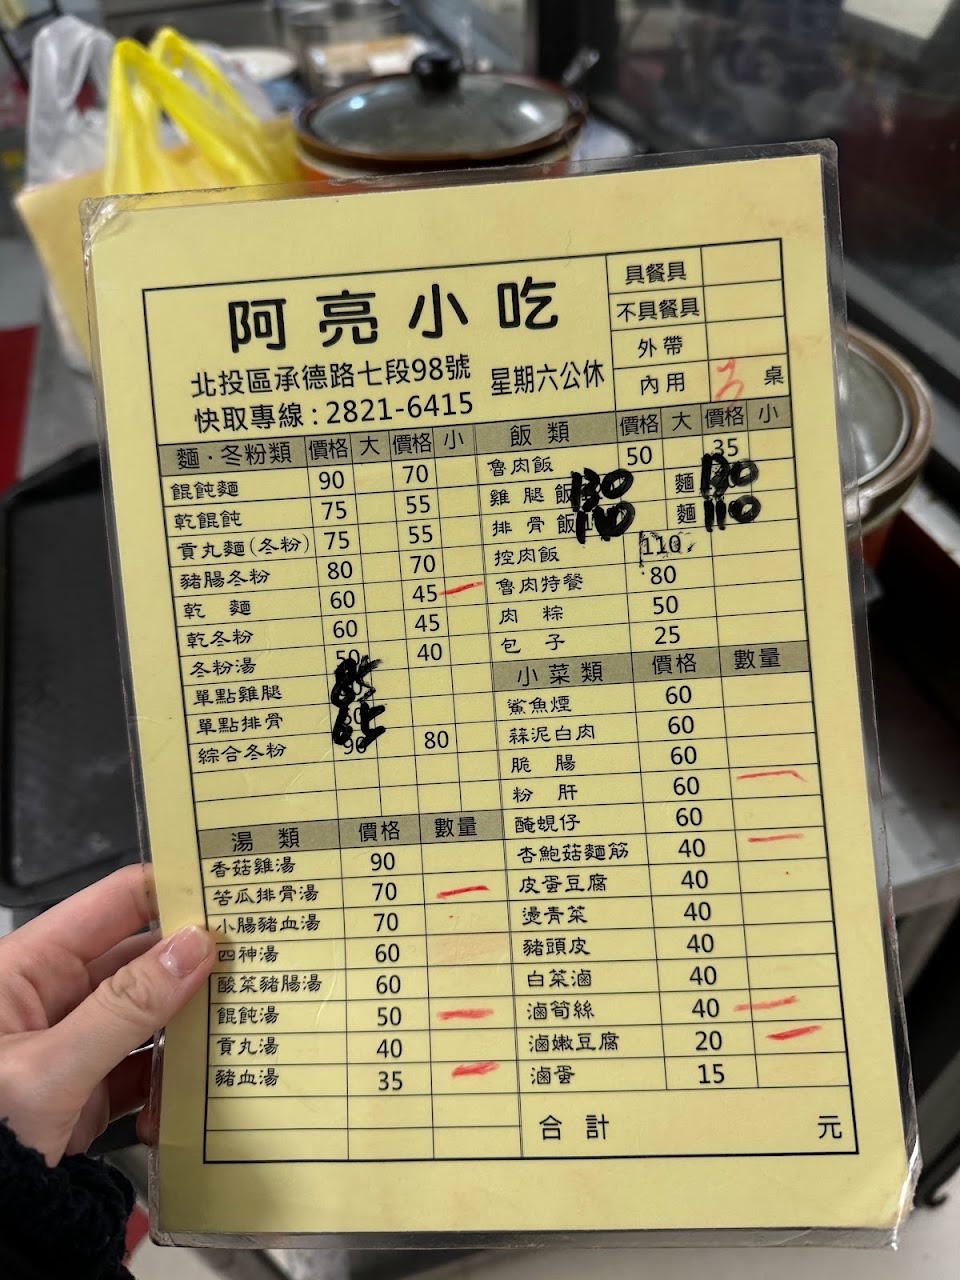 阿亮小吃
北投區承德路七段98號
快取專線:2821-6415
星期六公休
具餐具
不具餐具
外帶
內用 3 桌
麵·冬粉類 價格 大 價格 小
餛飩麵 90 70
乾餛飩 75 55
貢丸麵(冬粉) 75 55
豬腸冬粉 80 70
乾麵 60 45
乾冬粉 60 45
冬粉湯 50 40
單點雞腿
單點排骨 65
綜合冬粉 90 80
湯類 價格 數量
香菇雞湯 90
苦瓜排骨湯 70
小腸豬血湯 70
四神湯 60
酸菜豬腸湯 60
餛飩湯 50
貢丸湯 40
豬血湯 35
飯類 價格 大 價格 小
魯肉飯 50 35
雞腿飯 130 麵 130
排骨飯 110 麵 110
控肉飯 110
魯肉特餐 80
肉粽 50
包子 25
小菜類 價格 數量
鯊魚煙 60
蒜泥白肉 60
脆腸 60
粉肝 60
醃蜆仔 60
杏鮑菇麵筋 40
皮蛋豆腐 40
燙青菜 40
豬頭皮 40
白菜滷 40
滷筍絲 40
滷嫩豆腐 20
滷蛋 15
合計 元